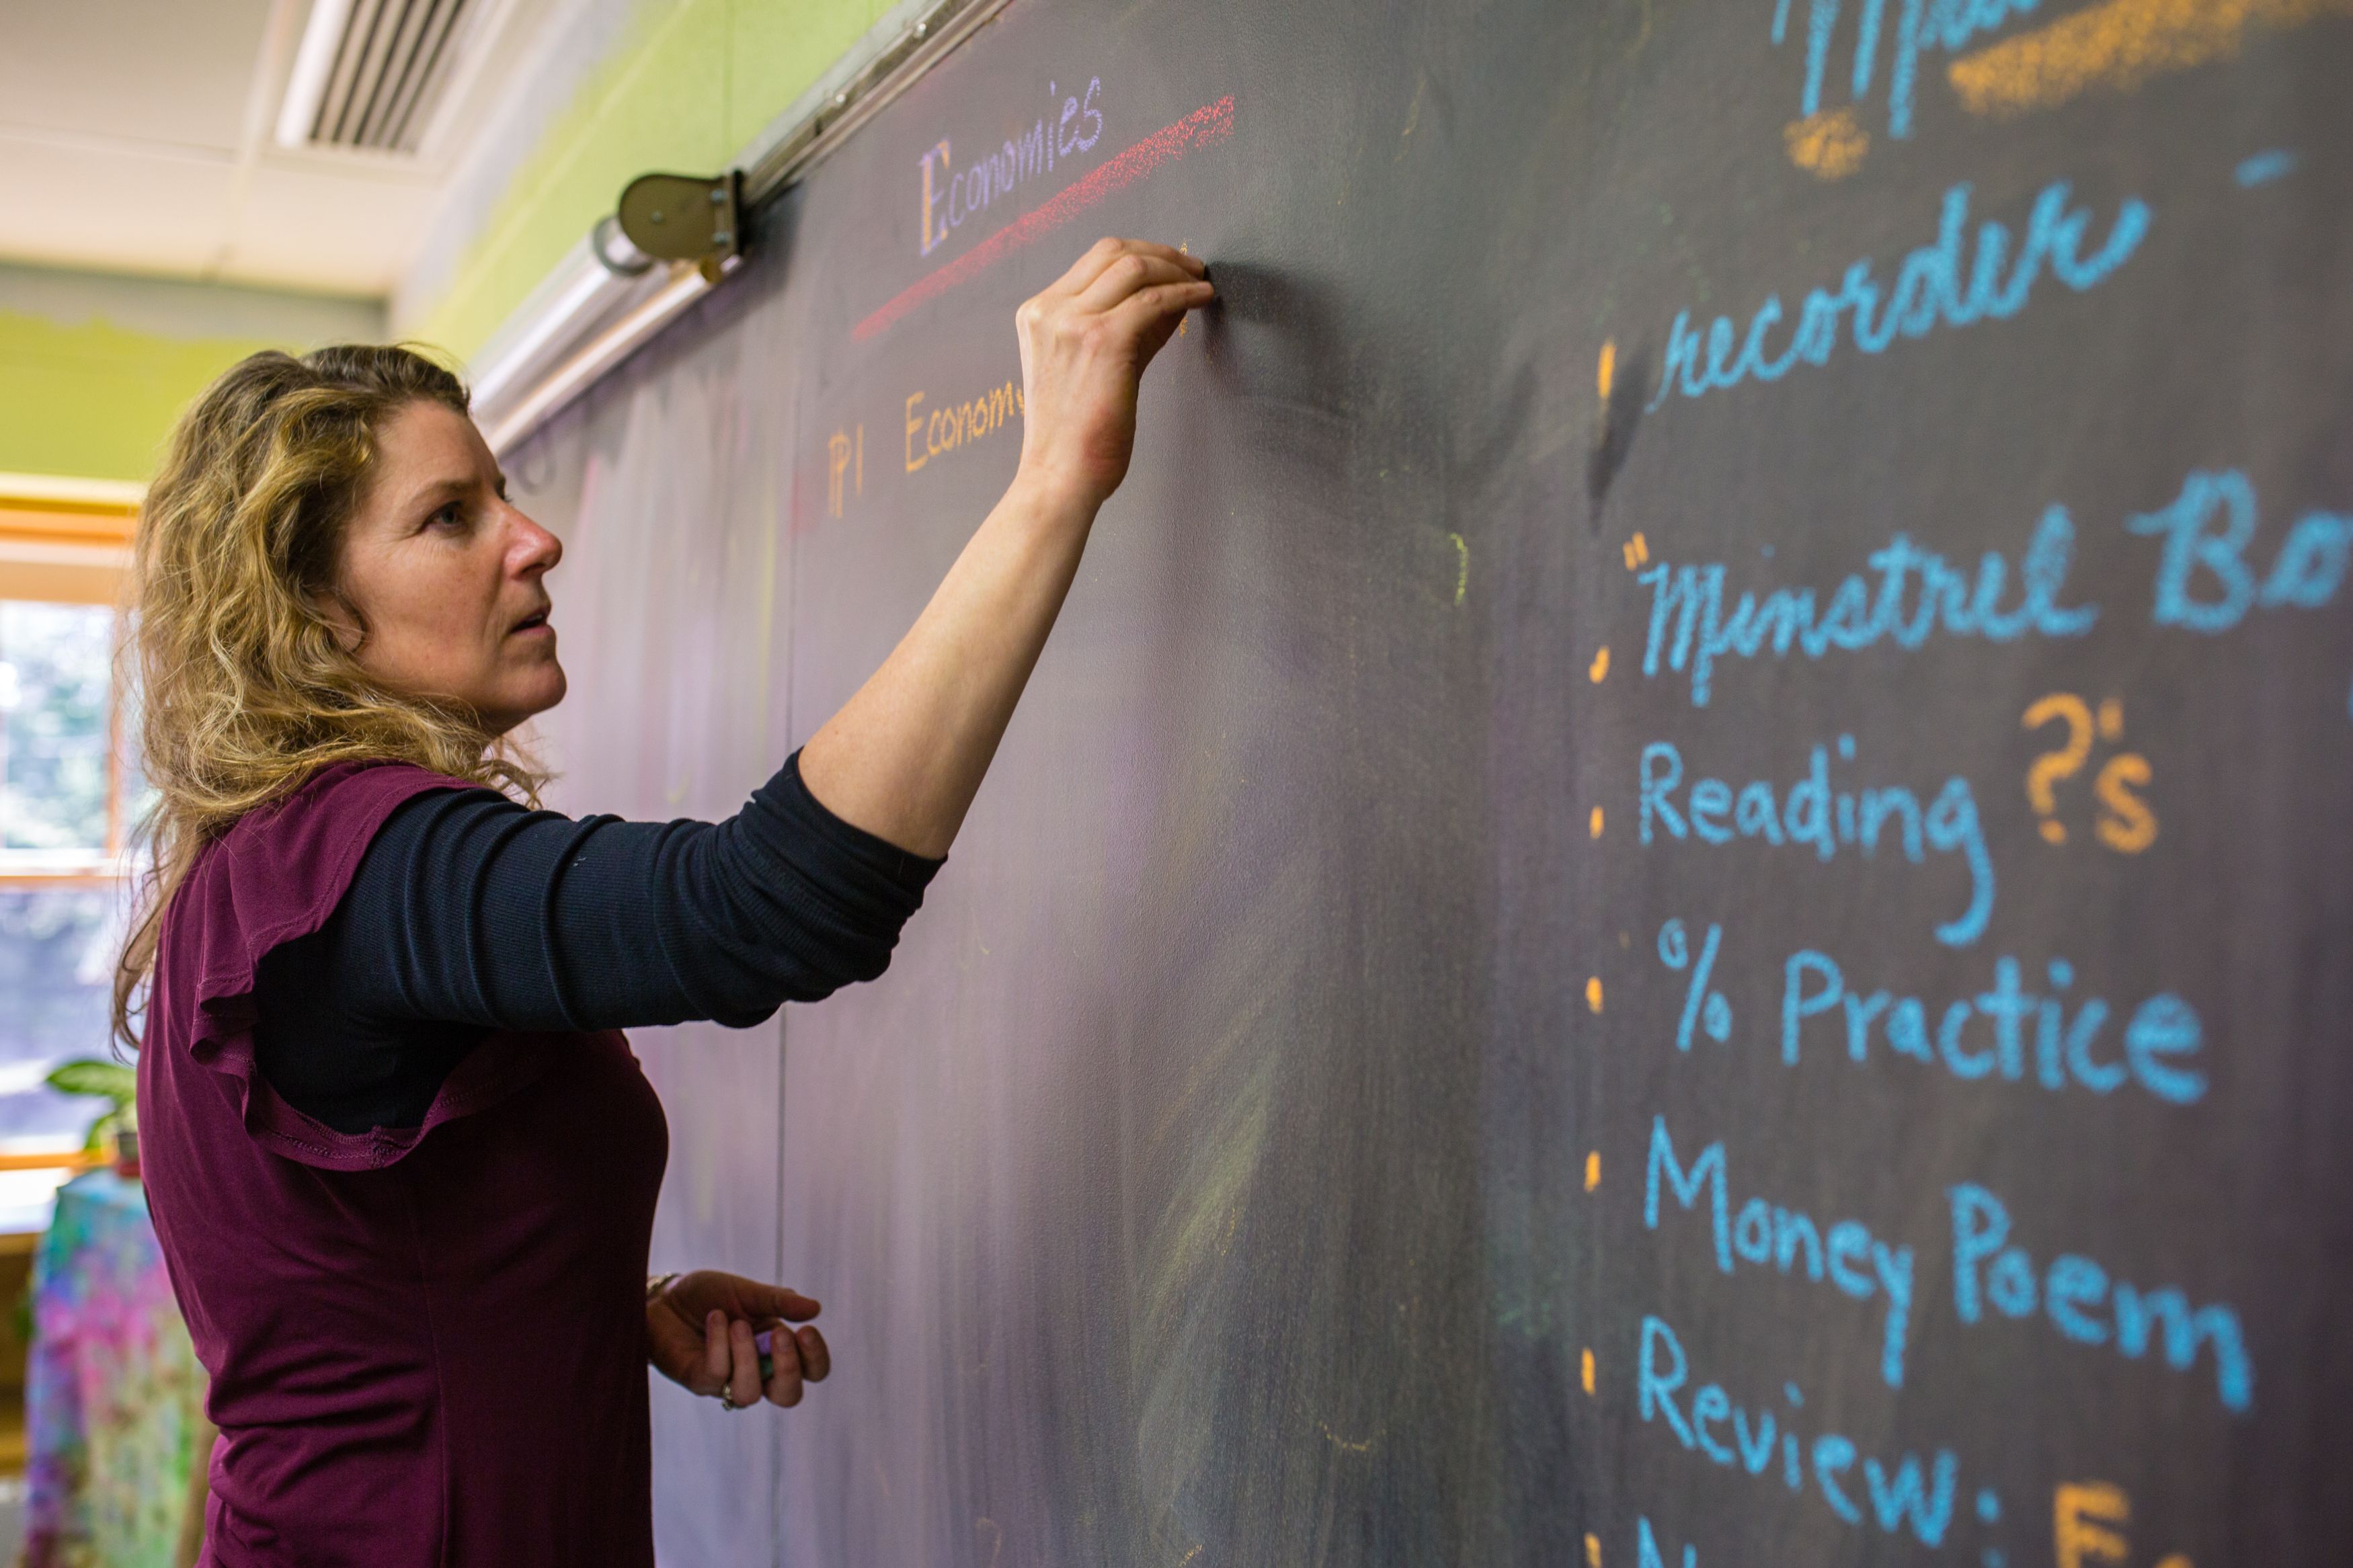 Economies
¶1 Economy
recorder -
"Minstrel Bo
Reading ?'s
% Practice
Money Poem
Review: E